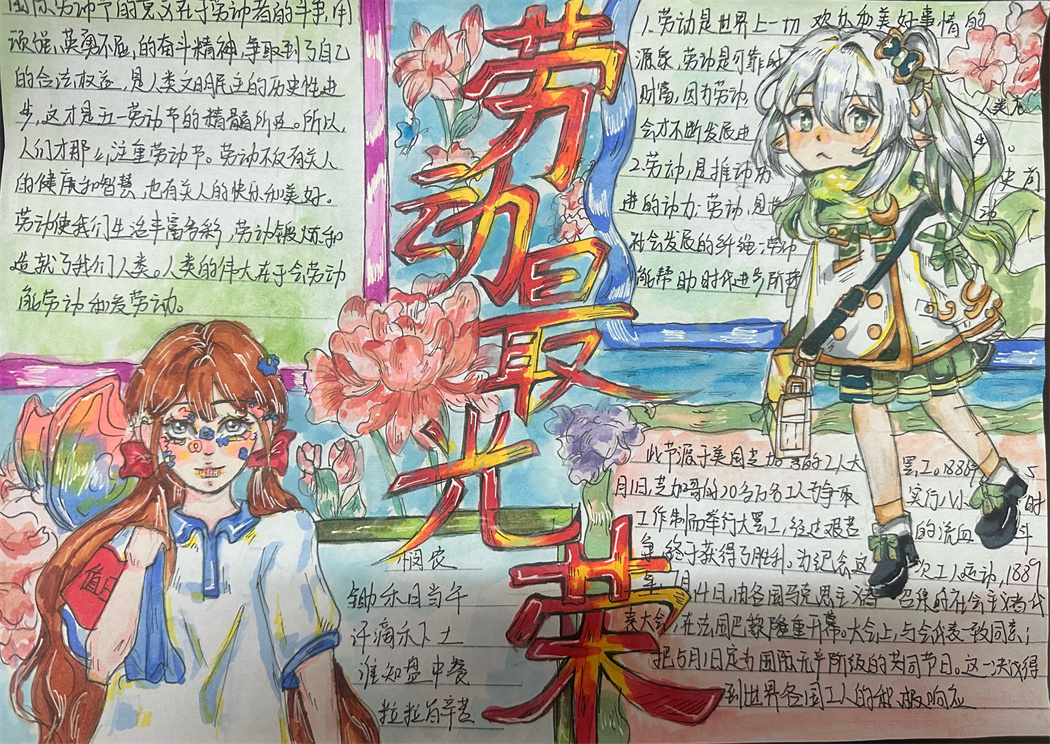 国际劳动节的意义在于劳动者的斗争,用
顽强,英勇不屈,的奋斗精神,争取到了自己
的合法权益,是人类文明民主的历史性进
步,这才是五一劳动节的精髓所在。所以,
人们才那么注重劳动节。劳动不仅有关人
的健康和智慧,也有关人的快乐和美好。
劳动使我们生活丰富多彩,劳动锻炼和
造就了我们人类。人类的伟大在于会劳动
能劳动和爱劳动。
劳动最光荣
1.劳动是世界上一切欢乐和美好事情的
源泉,劳动是可靠的
财富,因为劳动,人类
会才不断发展进
2.劳动,是推动历史前
进的动力;劳动,是
社会发展的纤绳-劳动
能帮助时代进步
值日
悯农
锄禾日当午
汗滴禾下土
谁知盘中餐
粒粒皆辛苦
此节源于美国芝加哥的工人大罢工。1886年5
月1日,芝加哥的20多万名工人为争取实行八小时
工作制而举行大罢工,经过艰苦的流血斗
争,终于获得了胜利。为纪念这次工人运动,1889
年7月14日,由各国马克思主义者召集的社会主义者代
表大会,在法国巴黎隆重开幕。大会上,与会代表一致同意;
把5月1日定为国际无产阶级的共同节日。这一决议得
到世界各国工人的积极响应